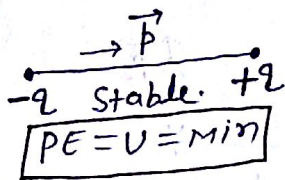 → p⃗
-q Stable. +q
PE = U = Min